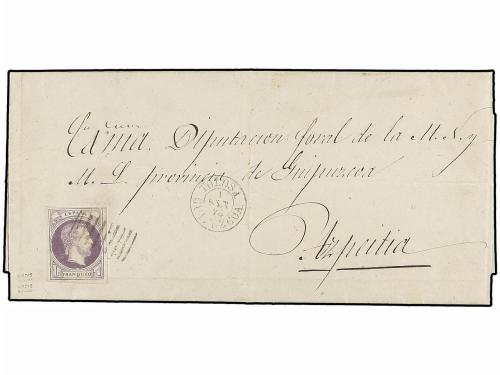 Exma. Diputacion foral de la M. N. y
M. L. provincia de Guipuzcoa
TOLOSA
1
GUIPUZCOA
Azpeitia
ESPAÑA
FRANQUEO